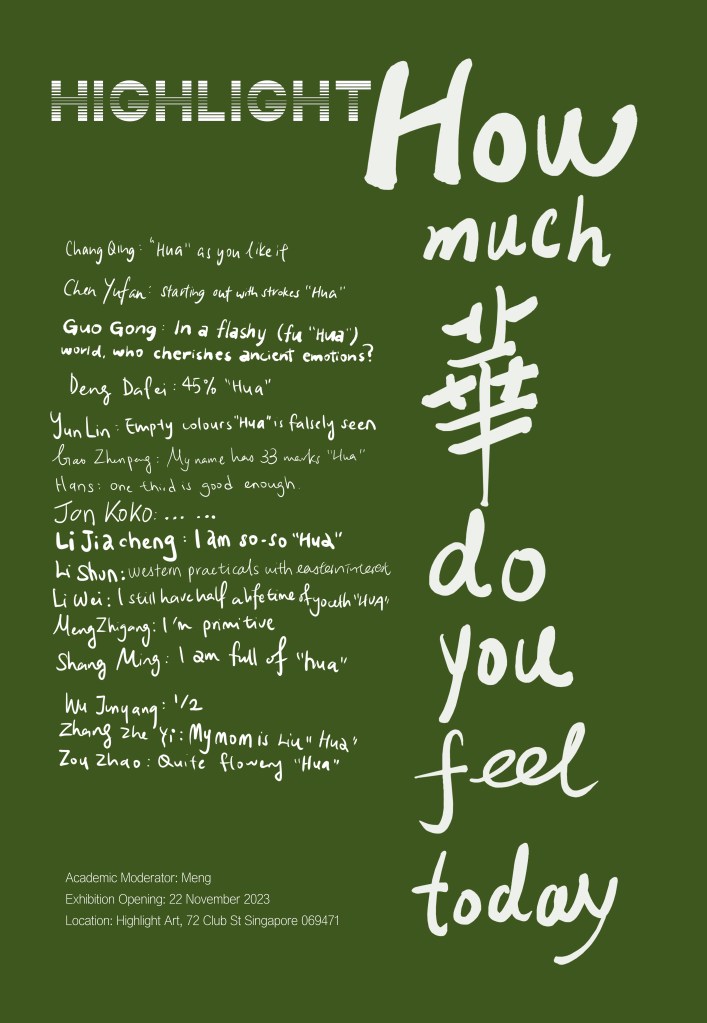 HIGHLIGHT
How
much
華
do
you
feel
today
Chang Qing: "Hua" as you like it
Chen Yufan: Starting out with strokes "Hua"
Guo Gong: In a flashy (fu "Hua")
world, who cherishes ancient emotions?
Deng Dafei: 45% "Hua"
Yun Lin: Empty colours "Hua" is falsely seen
Gao Zhenpeng: My name has 33 marks "Hua"
Hans: one third is good enough.
Jon KoKo: ... ...
Li Jiacheng: I am so-so "Hua"
Li Shun: western practicals with eastern interest
Li Wei: I still have half a lifetime of youth "HUA"
Meng Zhigang: I'm primitive
Shang Ming: I am full of "hua"
Wu Junyang: 1/2
Zhang Zhe Yi: My mom is Liu "Hua"
Zou Zhao: Quite flowery "Hua"
Academic Moderator: Meng
Exhibition Opening: 22 November 2023
Location: Highlight Art, 72 Club St Singapore 069471